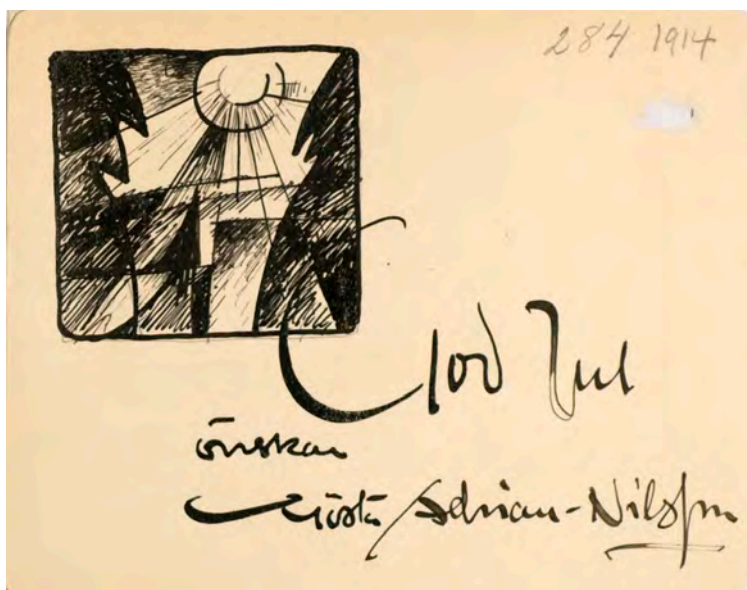 284 1914
God Jul
önskar
Gösta Adrian-Nilsson